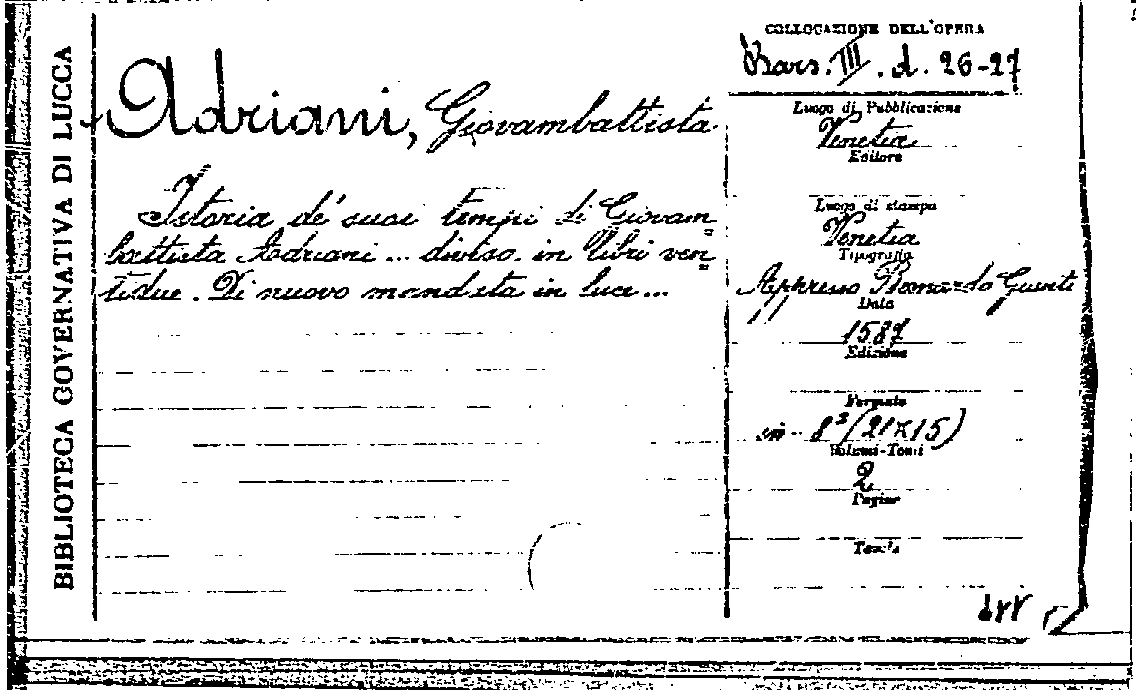 BIBLIOTECA GOVERNATIVA DI LUCCA
Adriani, Giovambattista
Istoria de' suoi tempi di Giovam=
battista Adriani ... diviso in libri ven=
tidue. Di nuovo mandata in luce ...
COLLOCAZIONE DELL'OPERA
Bars. III. d. 26-27
Luogo di Pubblicazione
Venetia
Editore
Luogo di stampa
Venetia
Tipografia
Appresso Bernardo Giunti
Data
1587
Edizione
Formato
in-8° (21×15)
Volumi-Tomi
2
Pagine
Tavole